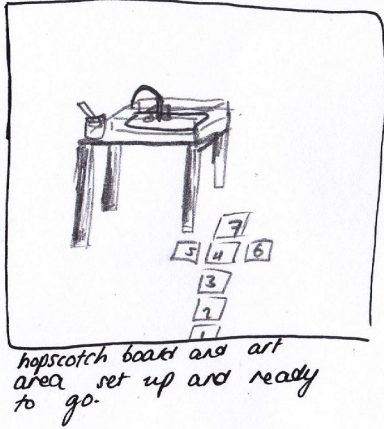 7
5 4 6
3
2
1
hopscotch board and art
area set up and ready
to go.